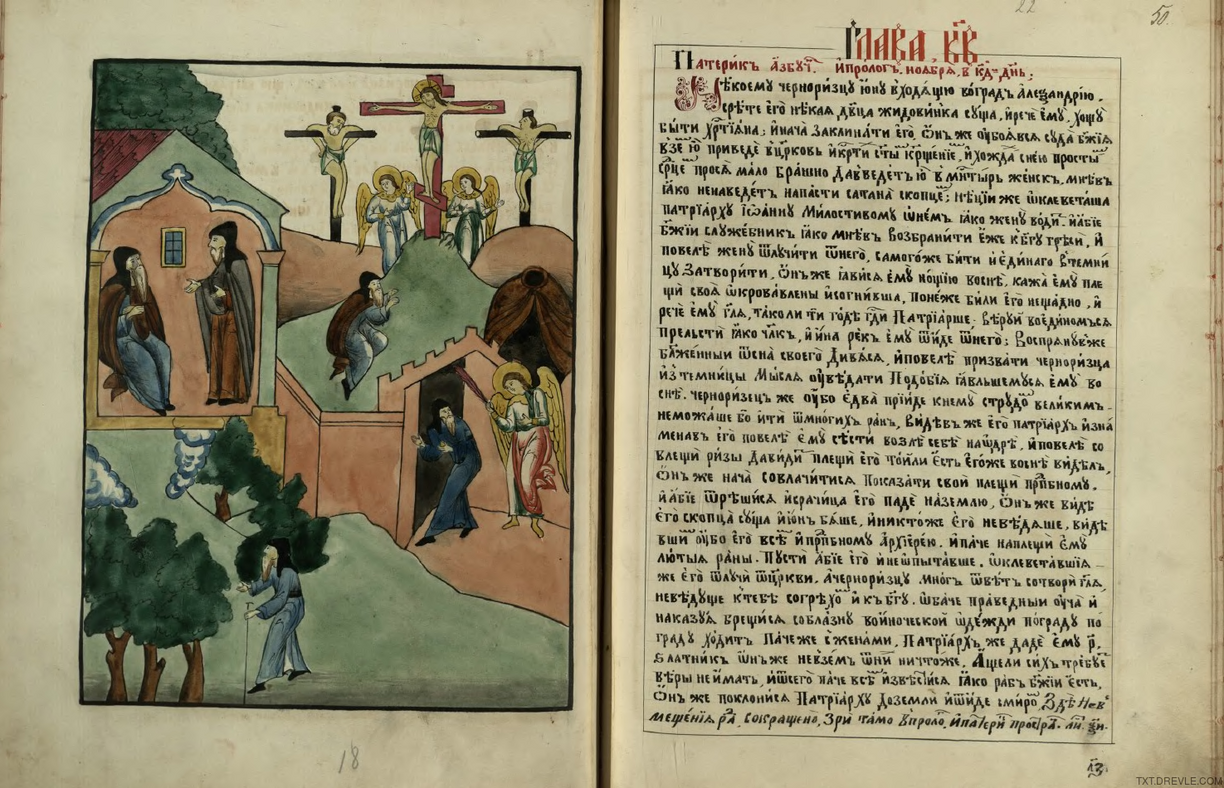 22
50.
Глава, к҃в
Патерикъ азбуч. и прологъ, ноября, в к҃д днь;
Некоему черноризцу юну входящу во градъ Алеѯандрію,
срѣте его нѣкая двца жидовинка суща, и рече ему, хощу
быти хртіяна; и нача заклинати его, Онъ же ѹбоявся суда бжія
взе ю приведе в церковь и крти сты крщеніе, и хожда с нею просты
срце прося мало брашно
яко ненаведетъ напасти сатана скопце; нѣціи же ѡклеветаша
патріарху Іѡанну Милостивому ѡ немъ, яко жену водит. и абіе
бжіи служебникъ яко мнѣвъ возбранити еже к бгу грѣхи, и
повелѣ жену ѿлучити ѿ него, самого же бити и единаго в темни
цу затворити, Онъ же явися ему нощію во снѣ, кажа ему пле
щи своя ѡкровавлены и согнивша, понеже били его нещадно, и
рече ему гля, тако ли ти годѣ гди Патріарше, вѣруй во единомъ ся
прельсти яко члкъ, и ина рекъ ему ѿиде ѿ него; Воспрянув же
блаженныи ѿ сна своего дивяся, и повелѣ призвати черноризца
из темницы мысля ѹвѣдати подобія явльшемуся ему во
снѣ. черноризец же ѹбо едва пріиде к нему с трудо великимъ
неможаше бо ити ѿ многихъ ранъ, Видѣв же его патріархъ и зна
менавъ его повелѣ ему сѣсти возлѣ себѣ на ѡдрѣ, и повелѣ со
влещи ризы да види плещи его той ли есть егоже во снѣ видѣлъ,
Онъ же нача совлачитися показати свои плещи прпбному,
и абіе ѿрѣшися и срачица его паде на землю, Онъ же видѣ
его скопца суща и юн бяше, и никтоже его невѣдяше, видѣ
вши ѹбо его всѣ и прпбному Архіерею. и паче на плещи ему
лютыя раны. Пусти абіе его и неиспытавше, ѡклеветавшія
же его ѿлучи ѿ церкви. А черноризцу многъ ѿвѣтъ сотвори гля,
невѣдуще к тебѣ согрѣхо и къ бгу. ѡбаче праведныи ѹча и
наказуя
граду ходитъ паче же с женами, Патріархъ же даде ему р҃,
златникъ ѡнъ же невземъ ѡ ни ничтоже, Аще ли сихъ требуе
вѣры не имать, и ѿ сего паче всѣ извѣсися яко рабъ бжіи есть,
Онъ же поклонися Патріарху до земли и ѿиде смиро, Здѣ нев
мещенія ра, сокращено, Зри тамо в проло, и патери простра.
18
TXT.DREVLE.COM